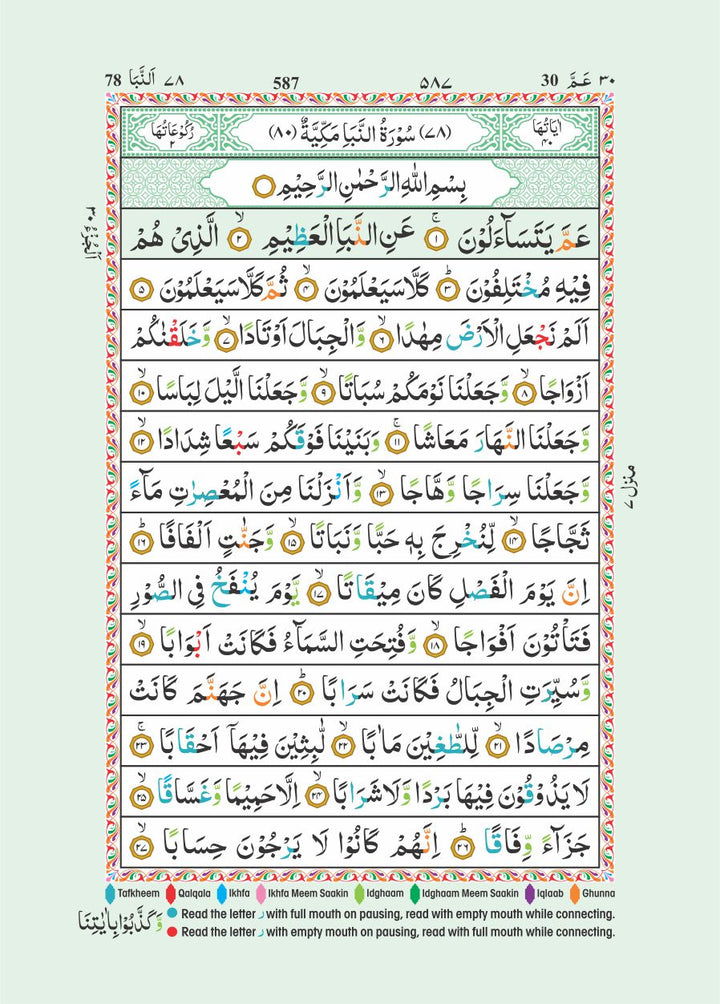 78 اَلنَّبَا ٧٨ 587 ٥٨٧ 30 عَمَّ ٣٠
رُكُوْعَاتُهَا ٢ (٧٨) سُوْرَةُ النَّبَاِ مَكِّيَّةٌ (٨٠) اٰيَاتُهَا ٤٠
بِسْمِ اللّٰهِ الرَّحْمٰنِ الرَّحِيْمِ
عَمَّ يَتَسَآءَلُوْنَ ١ۚ عَنِ النَّبَاِ الْعَظِيْمِ ٢ۙ الَّذِىْ هُمْ
فِيْهِ مُخْتَلِفُوْنَ ٣ؕ كَلَّا سَيَعْلَمُوْنَ ٤ۙ ثُمَّ كَلَّا سَيَعْلَمُوْنَ ٥
اَلَمْ نَجْعَلِ الْاَرْضَ مِهٰدًا ٦ۙ وَّالْجِبَالَ اَوْتَادًا ٧ۙ وَّخَلَقْنٰكُمْ
اَزْوَاجًا ٨ۙ وَّجَعَلْنَا نَوْمَكُمْ سُبَاتًا ٩ۙ وَّجَعَلْنَا الَّيْلَ لِبَاسًا ١٠ۙ
وَّجَعَلْنَا النَّهَارَ مَعَاشًا ١١ۚ وَبَنَيْنَا فَوْقَكُمْ سَبْعًا شِدَادًا ١٢ۙ
وَّجَعَلْنَا سِرَاجًا وَّهَّاجًا ١٣ۙ وَّاَنْزَلْنَا مِنَ الْمُعْصِرٰتِ مَآءً
ثَجَّاجًا ١٤ۙ لِّنُخْرِجَ بِهٖ حَبًّا وَّنَبَاتًا ١٥ۙ وَّجَنّٰتٍ اَلْفَافًا ١٦ؕ
اِنَّ يَوْمَ الْفَصْلِ كَانَ مِيْقَاتًا ١٧ۙ يَّوْمَ يُنْفَخُ فِى الصُّوْرِ
فَتَاْتُوْنَ اَفْوَاجًا ١٨ۙ وَّفُتِحَتِ السَّمَآءُ فَكَانَتْ اَبْوَابًا ١٩ۙ
وَّسُيِّرَتِ الْجِبَالُ فَكَانَتْ سَرَابًا ٢٠ؕ اِنَّ جَهَنَّمَ كَانَتْ
مِرْصَادًا ٢١ۙ لِّلطّٰغِيْنَ مَاٰبًا ٢٢ۙ لّٰبِثِيْنَ فِيْهَآ اَحْقَابًا ٢٣ۚ
لَا يَذُوْقُوْنَ فِيْهَا بَرْدًا وَّلَا شَرَابًا ٢٤ۙ اِلَّا حَمِيْمًا وَّغَسَّاقًا ٢٥ۙ
جَزَآءً وِّفَاقًا ٢٦ؕ اِنَّهُمْ كَانُوْا لَا يَرْجُوْنَ حِسَابًا ٢٧ۙ
اَلْجُزْءُ ٣٠
منزل ٧
Tafkheem Qalqala Ikhfa Ikhfa Meem Saakin Idghaam Idghaam Meem Saakin Iqlaab Ghunna
Read the letter ر with full mouth on pausing, read with empty mouth while connecting.
Read the letter ر with empty mouth on pausing, read with full mouth while connecting.
وَّكَذَّبُوْا بِاٰيٰتِنَا